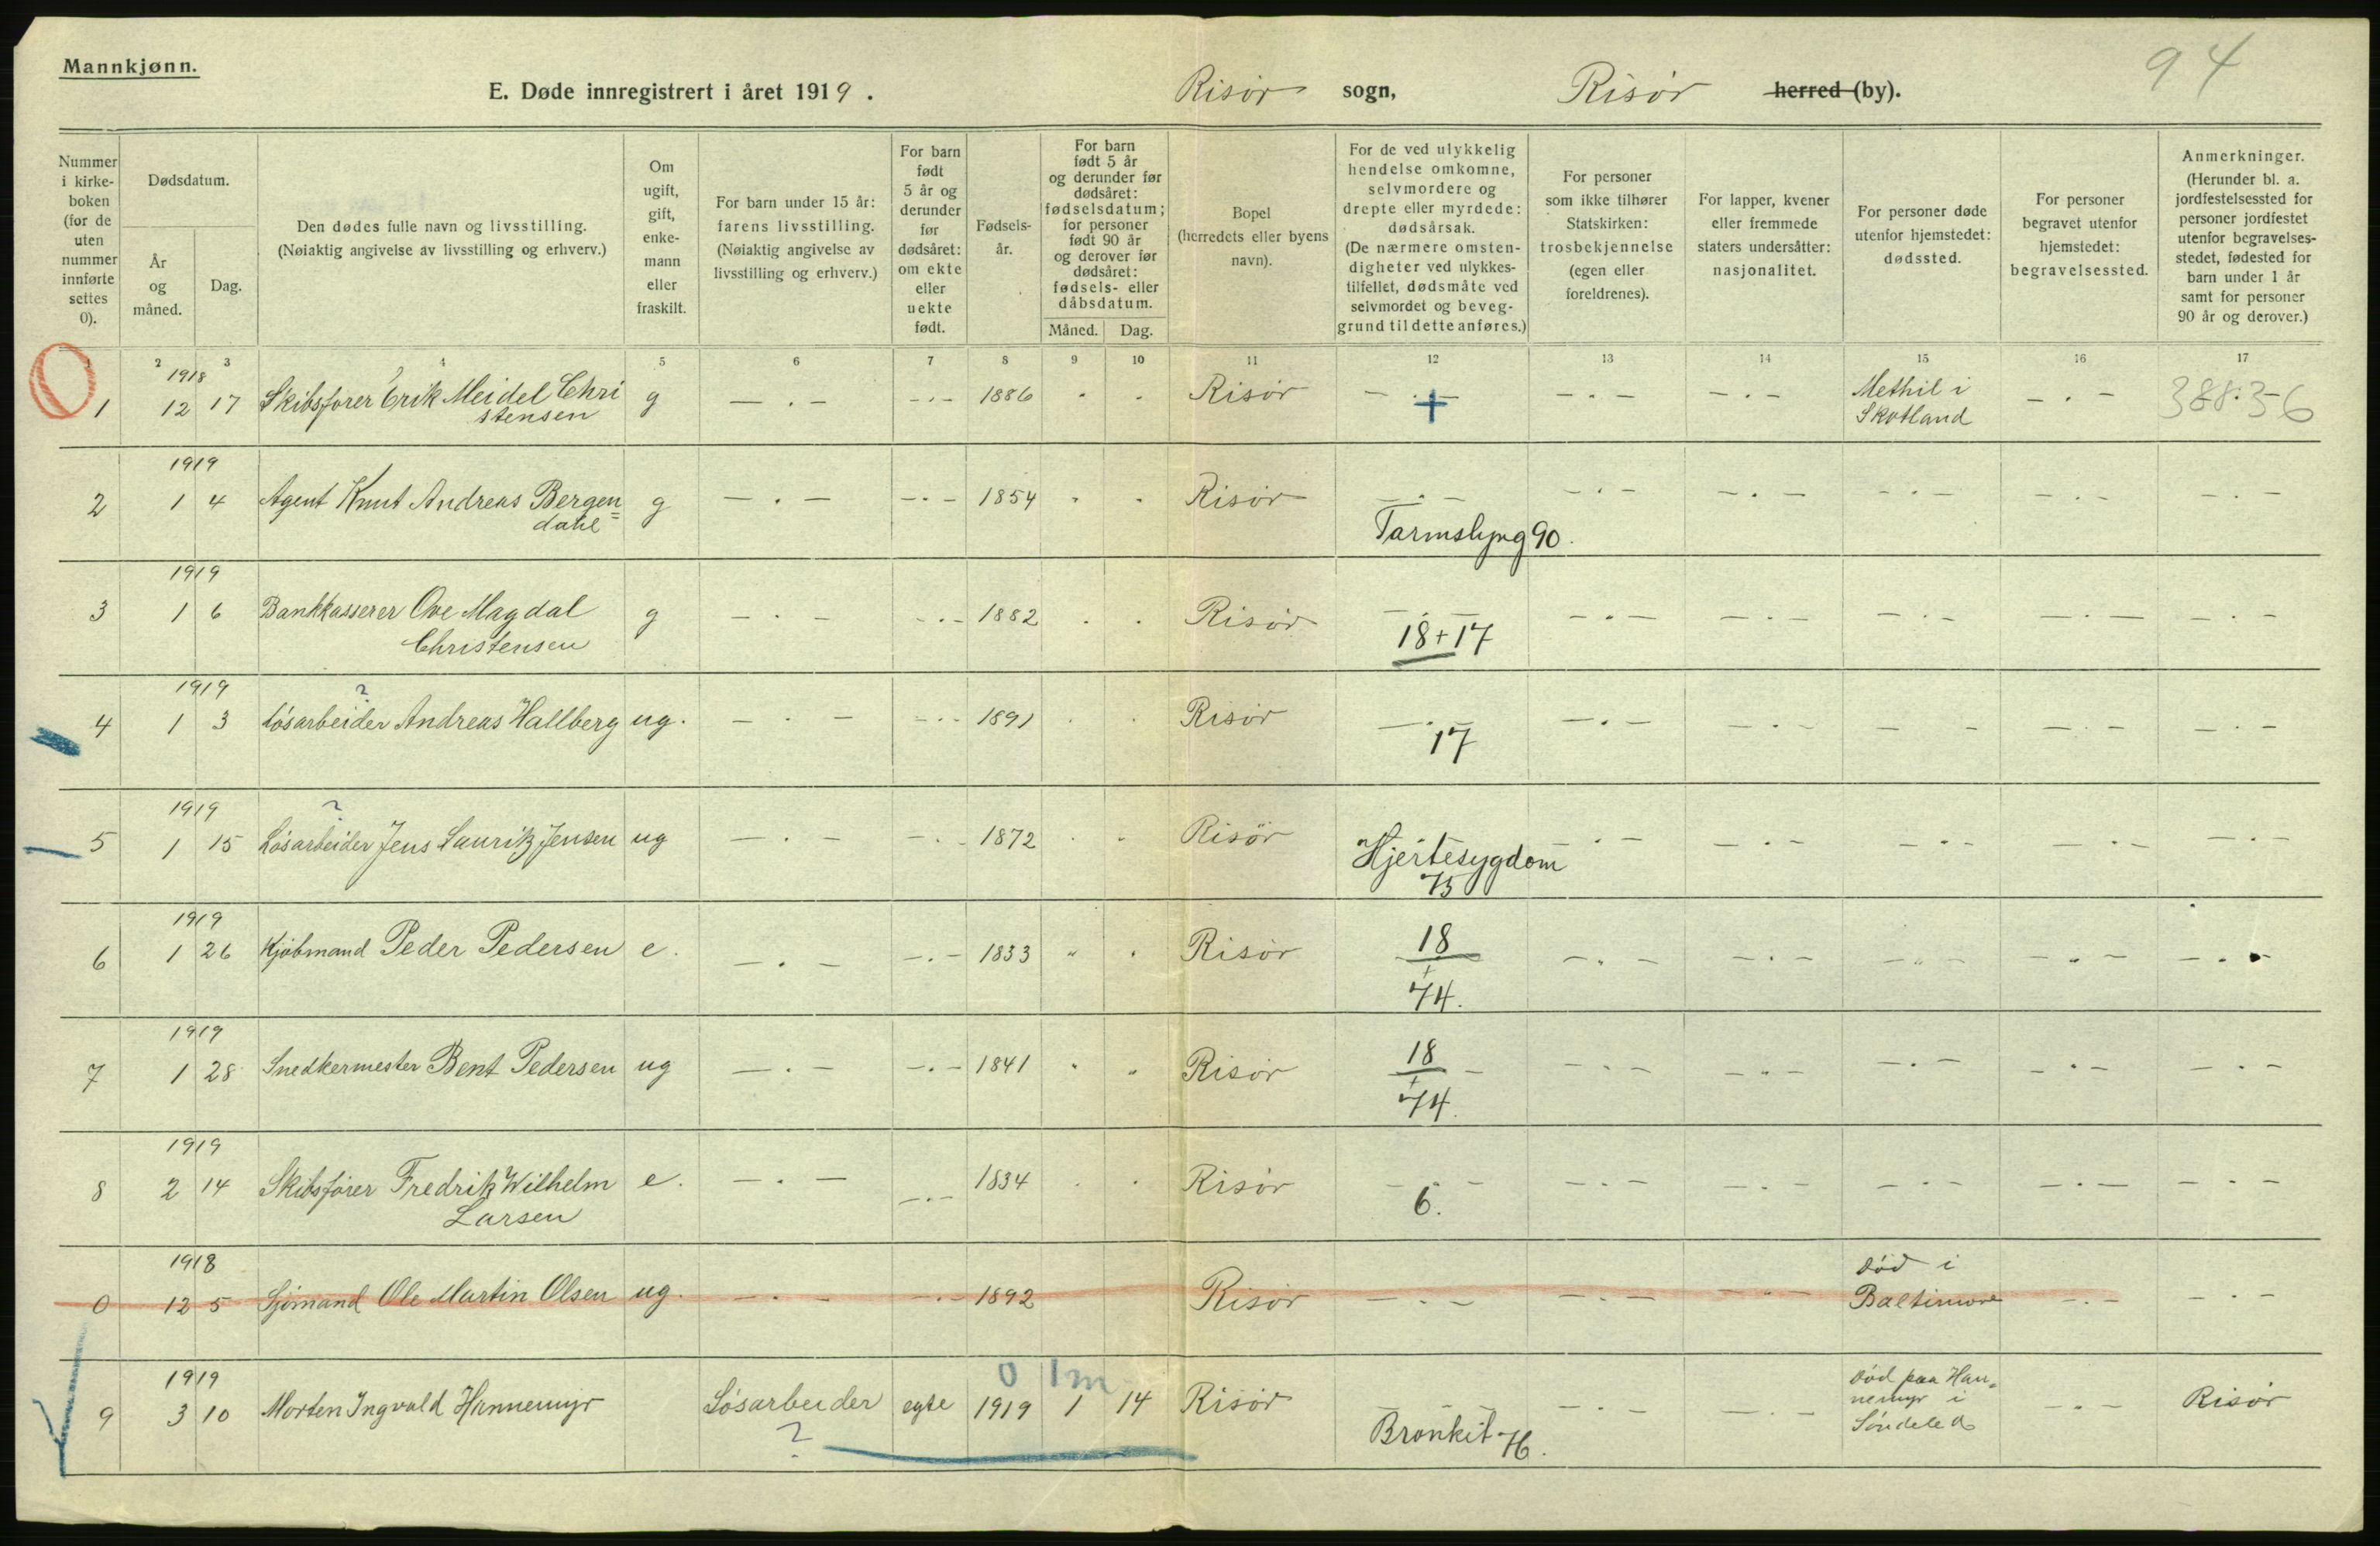 Mannkjønn.
94
E. Døde innregistrert i året 1919. Risör sogn, Risör herred (by).
Nummer i kirke-boken (for de uten nummer innførte settes 0).
Dødsdatum.
År og måned.
Dag.
Den dødes fulle navn og livsstilling.
(Nøiaktig angivelse av livsstilling og erhverv.)
Om ugift, gift, enke-mann eller fraskilt.
For barn under 15 år: farens livsstilling.
(Nøiaktig angivelse av livsstilling og erhverv.)
For barn født 5 år og derunder før dødsåret: om ekte eller uekte født.
Fødsels-år.
For barn født 5 år og derunder før dødsåret: fødselsdatum; for personer født 90 år og derover før dødsåret: fødsels- eller dåbsdatum.
Måned. Dag.
Bopel (herredets eller byens navn).
For de ved ulykkelig hendelse omkomne, selvmordere og drepte eller myrdede: dødsårsak.
(De nærmere omsten-digheter ved ulykkes-tilfellet, dødsmåte ved selvmordet og beveg-grund til dette anføres.)
For personer som ikke tilhører Statskirken: trosbekjennelse (egen eller foreldrenes).
For lapper, kvener eller fremmede staters undersåtter: nasjonalitet.
For personer døde utenfor hjemstedet: dødssted.
For personer begravet utenfor hjemstedet: begravelsessted.
Anmerkninger.
(Herunder bl. a. jordfestelsessted for personer jordfestet utenfor begravelses-stedet, fødested for barn under 1 år samt for personer 90 år og derover.)
1 2 3 4 5 6 7 8 9 10 11 12 13 14 15 16 17
1918
1 12 17 Skibsfører Erik Meidel Chri g — . — — . — 1886 Risör — . — + — . — — . — Methil i — . — 388:3-6
stensen Skotland
1919
2 1 4 Agent Knut Andreas Bergen= g — . — — . — 1854 Risör — . — — . — — . — — . — — . — — . —
dahl Tarmslyng 90.
1919
3 1 6 Bankkasserer Ove Magdal g — . — — . — 1882 Risör — . — — . — — . — — . — — . — — . —
Christensen 18+17
1919
?
4 1 3 Lösarbeider Andreas Hallberg ug. — . — — . — 1891 Risör — . — — . — — . — — — — . — — . —
17
1919
?
5 1 15 Lösarbeider Jens Lauritz Jensen ug — . — — . — 1872 Risör Hjertesygdom . — — . — — . — — . — — . —
75
1919
6 1 26 Kjöbmand Peder Pedersen e. — . — — . — 1833 Risör 18 + 74. — . — — . — — . — — . — — . —
1919
7 1 28 Snedkermester Bent Pedersen ug — . — — . — 1841 Risör 18 + 74. — . — — . — — . — — . — — . —
1919
8 2 14 Skibsfører Fredrik Wilhelm e. — . — — . — 1834 Risör — . — — . — — . — — . — — . — — . —
Larsen 6.
1918
0 12 5 Sjömand Ole Martin Olsen ug. — . — — . — 1892 Risör — . — — . — — . — Död i Baltimore — . — — . —
1919
0 1m
9 3 10 Morten Ingvald Hannemyr Lösarbeider egte 1919 1 14 Risör — — — — . — — . — Död paa Han= — . — Risör
? Bronkit 76. nemyr i
Söndeled